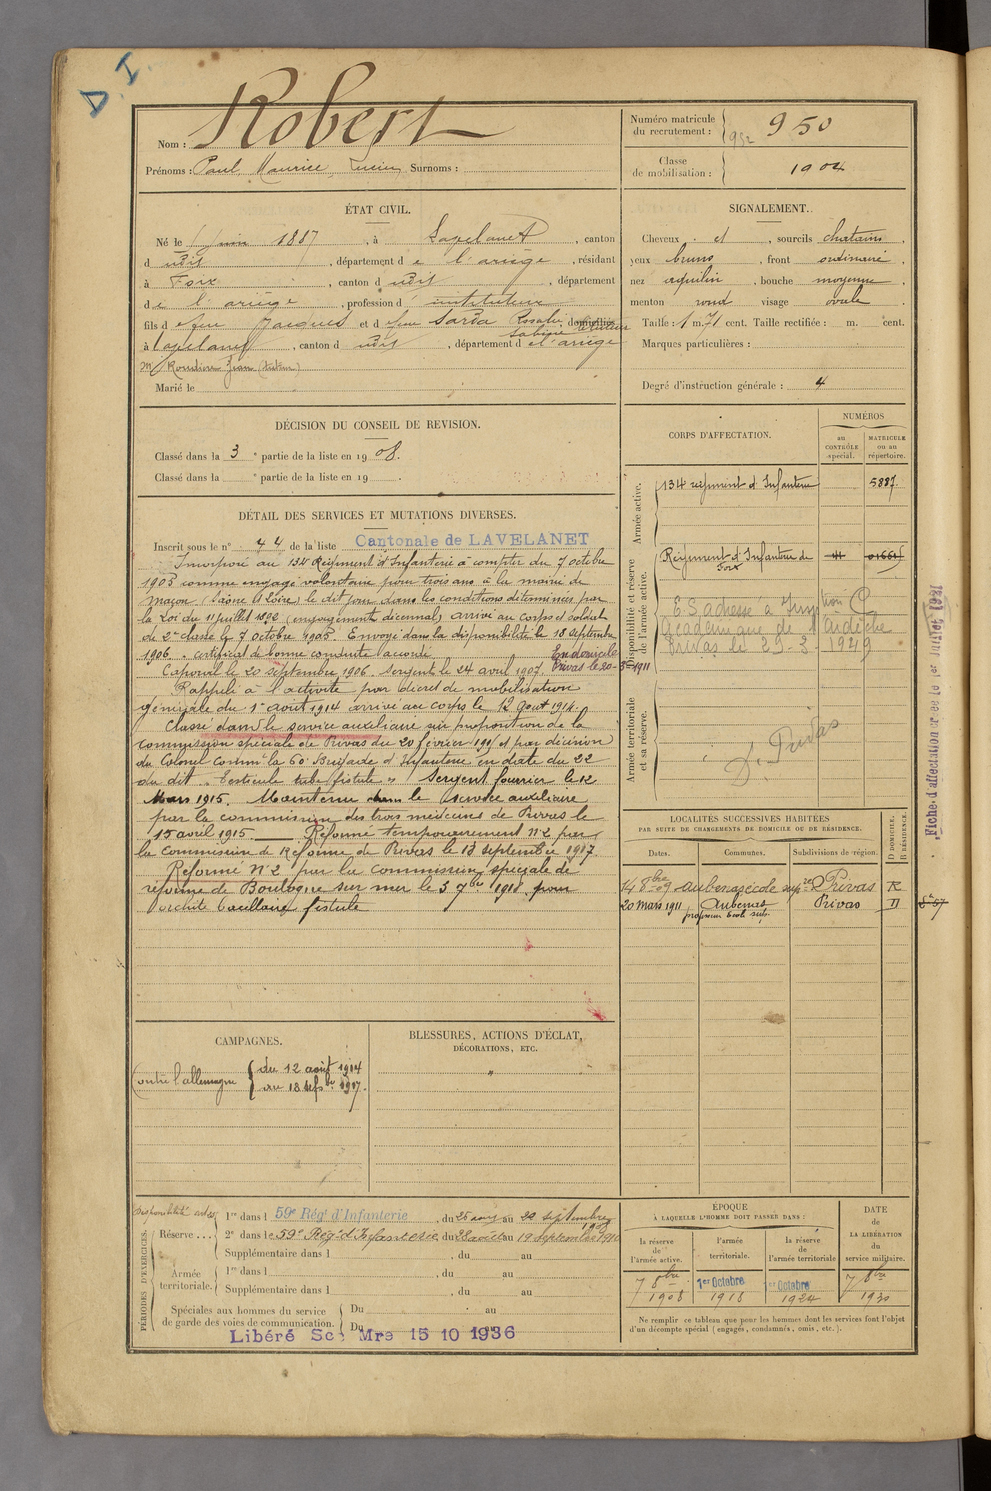 D. I.
Nom : Robert
Prénoms : Paul, Maurice, Lucien Surnoms :
Numéro matricule du recrutement : 950
952
Classe de mobilisation : 1904
ÉTAT CIVIL.
Né le 1 juin 1887, à Lavelanet, canton
d udit, département de l'ariège, résidant
à Foix, canton d udit, département
de l'ariège, profession d'instituteur
fils d e feu Jacques et d feu Sarda Rosalie, domiciliés
Sabine
à Lavelanet, canton d udit, département d e l'ariège
Mr Roudière Jean (tuteur)
Marié le
SIGNALEMENT.
Cheveux et, sourcils chatains,
yeux bruns, front ordinaire,
nez aquilin, bouche moyenne,
menton rond visage ovale.
Taille : 1 m. 71 cent. Taille rectifiée : m. cent.
Marques particulières :
Degré d'instruction générale : 4
DÉCISION DU CONSEIL DE REVISION.
Classé dans la 3e partie de la liste en 1908.
Classé dans la e partie de la liste en 19 .
DÉTAIL DES SERVICES ET MUTATIONS DIVERSES.
Inscrit sous le n° 44 de la liste Cantonale de LAVELANET
Incorporé au 134 Régiment d'Infanterie à compter du 7 octobre
1903 comme engagé volontaire pour trois ans à la mairie de
Macon (Saône et Loire) le dit jour dans les conditions déterminées par
la Loi du 11 juillet 1892 (engagement décennal) arrivé au corps et soldat
de 2e classe le 7 octobre 1903. Envoyé dans la disponibilité le 18 septembre
1906. Certificat de bonne conduite accordé.
En domicile
Privas le 20-3-1911
Caporal le 20 septembre 1906. Sergent le 24 avril 1907.
Rappelé à l'activité par décret de mobilisation
générale du 1er août 1914 arrivé au corps le 12 août 1914.
Classé dans le service auxiliaire sur proposition de la
commission spéciale de Privas du 20 février 1915 et par décision
du Colonel Comm. la 60e Brigade d'Infanterie en date du 22
du dit "Testicule tube fistule". Sergent fourrier le 12
Mars 1915. Maintenu dans le service auxiliaire
par la commission des trois médecins de Privas le
15 avril 1915. Réformé temporairement N°2 par
la Commission de Réforme de Privas le 13 septembre 1917.
Réformé N°2 par la commission spéciale de
réforme de Boulogne sur mer le 3 7bre 1918 pour
orchite bacillaire fistule
CORPS D'AFFECTATION.
NUMÉROS
au CONTRÔLE spécial.
MATRICULE ou au répertoire.
Armée active.
134 régiment d'Infanterie 5887.
Disponibilité et réserve de l'armée active.
Régiment d'Infanterie de Foix 41 01661
E.S. adresse à Inspection
Académique de l'Ardèche
Privas le 29-3-1929
Armée territoriale et sa réserve.
D. Privas
Fiche d'affectation créée le 1er Juillet 1931
LOCALITÉS SUCCESSIVES HABITÉES
PAR SUITE DE CHANGEMENTS DE DOMICILE OU DE RÉSIDENCE.
Dates. Communes. Subdivisions de région. D DOMICILE. R RÉSIDENCE.
14 8bre 09 Aubenas école supre Privas R
20 mars 1911 Aubenas Privas D
professeur Ecole sup.
CAMPAGNES.
Contre l'allemagne du 12 août 1914
au 13 septbre 1917.
BLESSURES, ACTIONS D'ÉCLAT,
DÉCORATIONS, ETC.
"
PÉRIODES D'EXERCICES.
Disponibilité
Réserve ...
1re dans l 59e Rég. d'Infanterie, du 26 août au 22 septembre 1908
2e dans le 59e Rég. d'Infanterie, du 28 août au 19 septembre 1910
Supplémentaire dans l , du au
Armée territoriale.
1re dans l , du au
Supplémentaire dans l , du au
Spéciales aux hommes du service de garde des voies de communication.
Du au
Du au
Libéré Sce Mre 15 10 1936
ÉPOQUE
À LAQUELLE L'HOMME DOIT PASSER DANS :
la réserve de l'armée active.
l'armée territoriale.
la réserve de l'armée territoriale
DATE de LA LIBÉRATION du service militaire.
7 8bre 1908
1er Octobre 1918
1er Octobre 1924
7 8bre 1930
Ne remplir ce tableau que pour les hommes dont les services font l'objet
d'un décompte spécial (engagés, condamnés, omis, etc.).